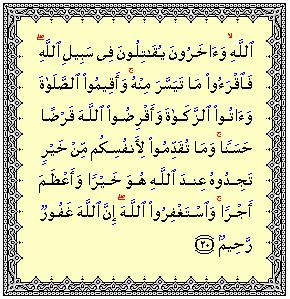 ٱللَّهِ ۙ وَءَاخَرُونَ يُقَٰتِلُونَ فِى سَبِيلِ ٱللَّهِ ۖ
فَٱقْرَءُوا۟ مَا تَيَسَّرَ مِنْهُ ۚ وَأَقِيمُوا۟ ٱلصَّلَوٰةَ
وَءَاتُوا۟ ٱلزَّكَوٰةَ وَأَقْرِضُوا۟ ٱللَّهَ قَرْضًا
حَسَنًا ۚ وَمَا تُقَدِّمُوا۟ لِأَنفُسِكُم مِّنْ خَيْرٍ
تَجِدُوهُ عِندَ ٱللَّهِ هُوَ خَيْرًا وَأَعْظَمَ
أَجْرًا ۚ وَٱسْتَغْفِرُوا۟ ٱللَّهَ ۖ إِنَّ ٱللَّهَ غَفُورٌ
رَّحِيمٌۢ ٢٠